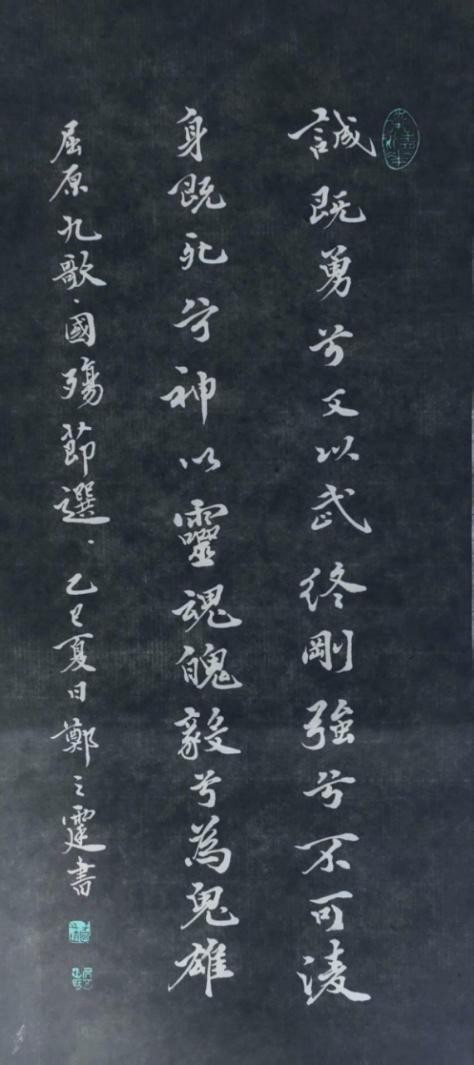 誠既勇兮又以武終剛強兮不可淩
身既死兮神以靈魂魄毅兮為鬼雄
屈原九歌·國殤節選·乙巳夏日鄭之霆書